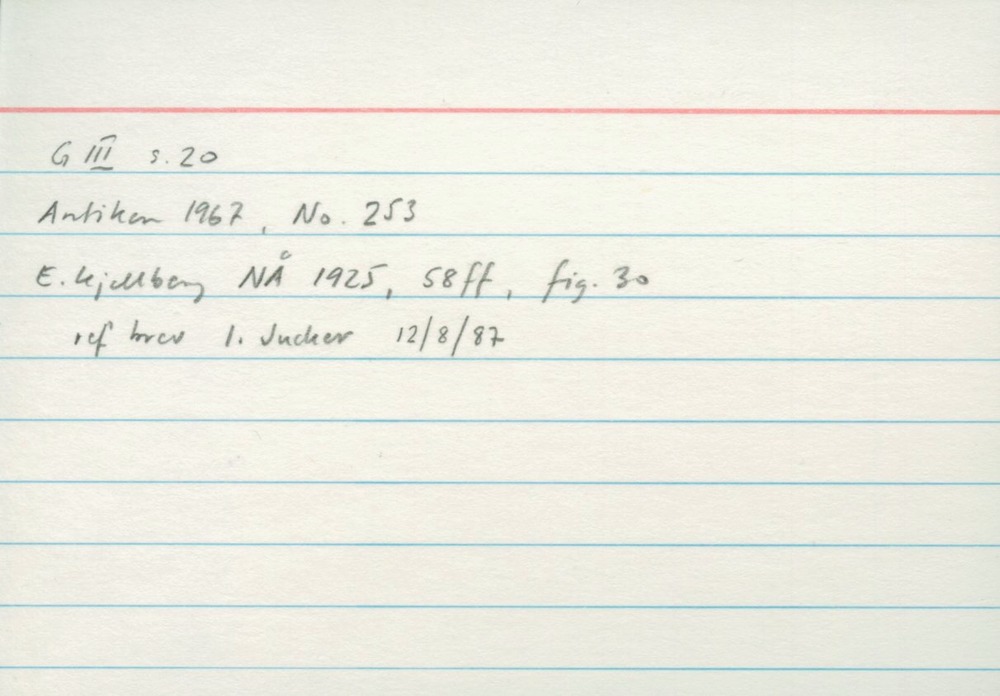 G III s. 20
Antiken 1967, No. 253
E. Kjellberg NÅ 1925, 58ff, fig. 30
ref brev I. Jucker 12/8/87